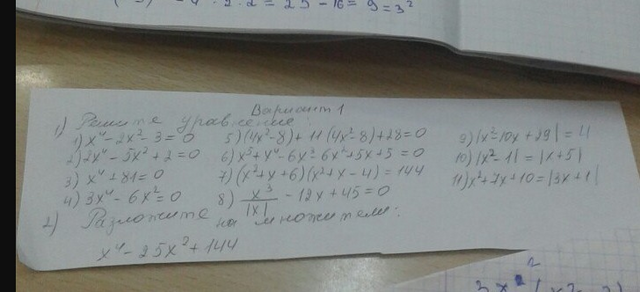 - 4 · 2 · 2 = 25 - 16 = 9 = 3²
Вариант 1
1) Решите уравнение:
1) x⁴ - 2x² - 3 = 0
2) 2x⁴ - 5x² + 2 = 0
3) x⁴ + 81 = 0
4) 3x⁴ - 6x² = 0
5) (4x²-8) + 11(4x²-8) + 28 = 0
6) x⁵ + x⁴ - 6x³ - 6x² + 5x + 5 = 0
7) (x²+x+6)(x²+x-4) = 144
8) x³/|x| - 12x + 45 = 0
9) |x²-10x+29| = 11
10) |x²-1| = |x+5|
11) x²+7x+10 = |3x+1|
2) Разложите на множители:
x⁴ - 25x² + 144